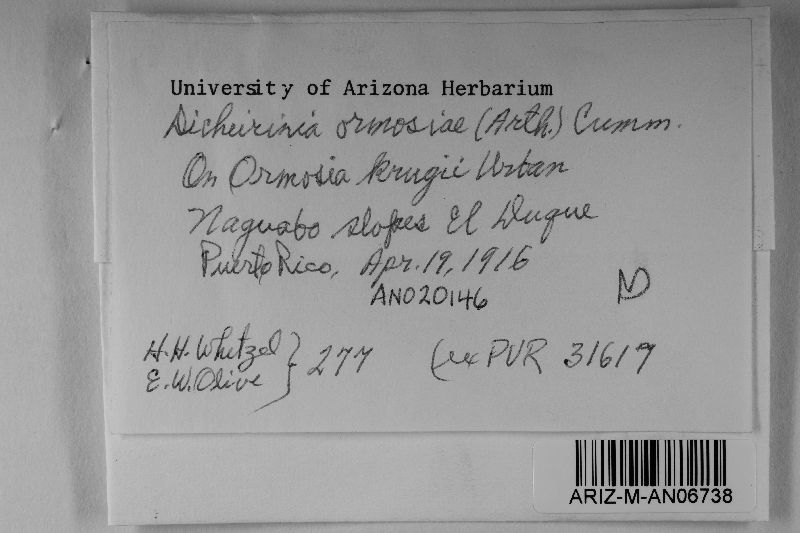 University of Arizona Herbarium
Dicheirinia ormosiae (Arth.) Cumm.
On Ormosia krugii Urban
Naguabo slopes El Duque
Puerto Rico, Apr. 19, 1916
AN020146
H. H. Whetzel
E. W. Olive } 277 (ex PUR 31617
ARIZ-M-AN06738